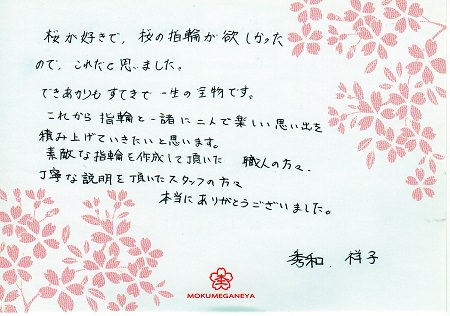 桜が好きで、桜の指輪が欲しかった
ので、これだと思いました。
できあがりもすてきで一生の宝物です。
これから指輪と一緒に二人で楽しい思い出を
積み上げていきたいと思います。
素敵な指輪を作成して頂いた 職人の方々、
丁寧な説明を頂いたスタッフの方々
本当にありがとうございました。
秀和、祥子
MOKUMEGANEYA